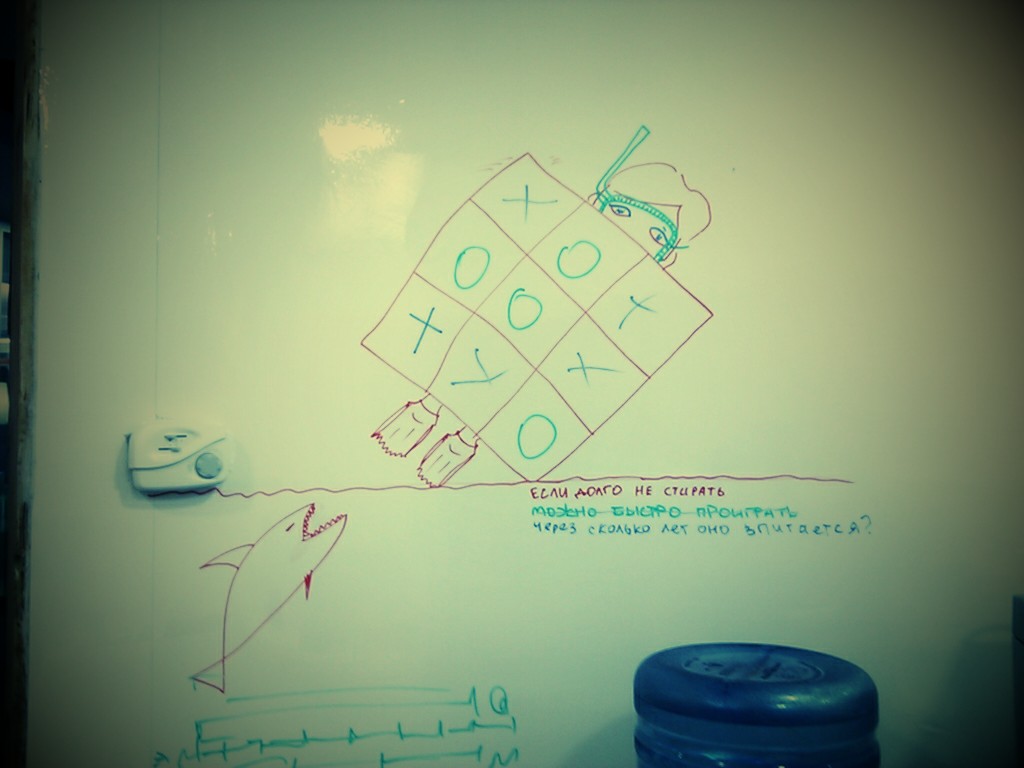 ЕСЛИ ДОЛГО НЕ СТИРАТЬ
МОЖНО БЫСТРО ПРОИГРАТЬ
ЧЕРЕЗ СКОЛЬКО ЛЕТ ОНО ЗПИТАЕТСЯ?